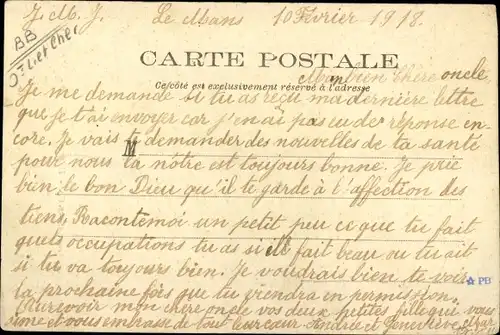 J. M. J. Le Mans 10 Février 1918.
BB
Dt Loir et Cher
CARTE POSTALE
Mon bien chère oncle
Ce côté est exclusivement réservé à l'adresse
Je me demande si tu as reçu ma dernière lettre
que je t'ai envoyer car j'en ai pas eu de réponse en-
core. Je vais te demander des nouvelles de ta santé
M
pour nous la nôtre est toujours bonne. Je prie
bien le bon Dieu qu'il te garde à l'affection des
tiens. Raconte moi un petit peu ce que tu fait
quels occupations tu as si il fait beau ou tu ait
si tu va toujours bien. Je voudrais bien te vois
PB
la prochaine fois que tu viendra en permission.
Aurevoir mon chère oncle vos deux petites fille qui vous
aime et vous embrasse de tout leur cœur. et